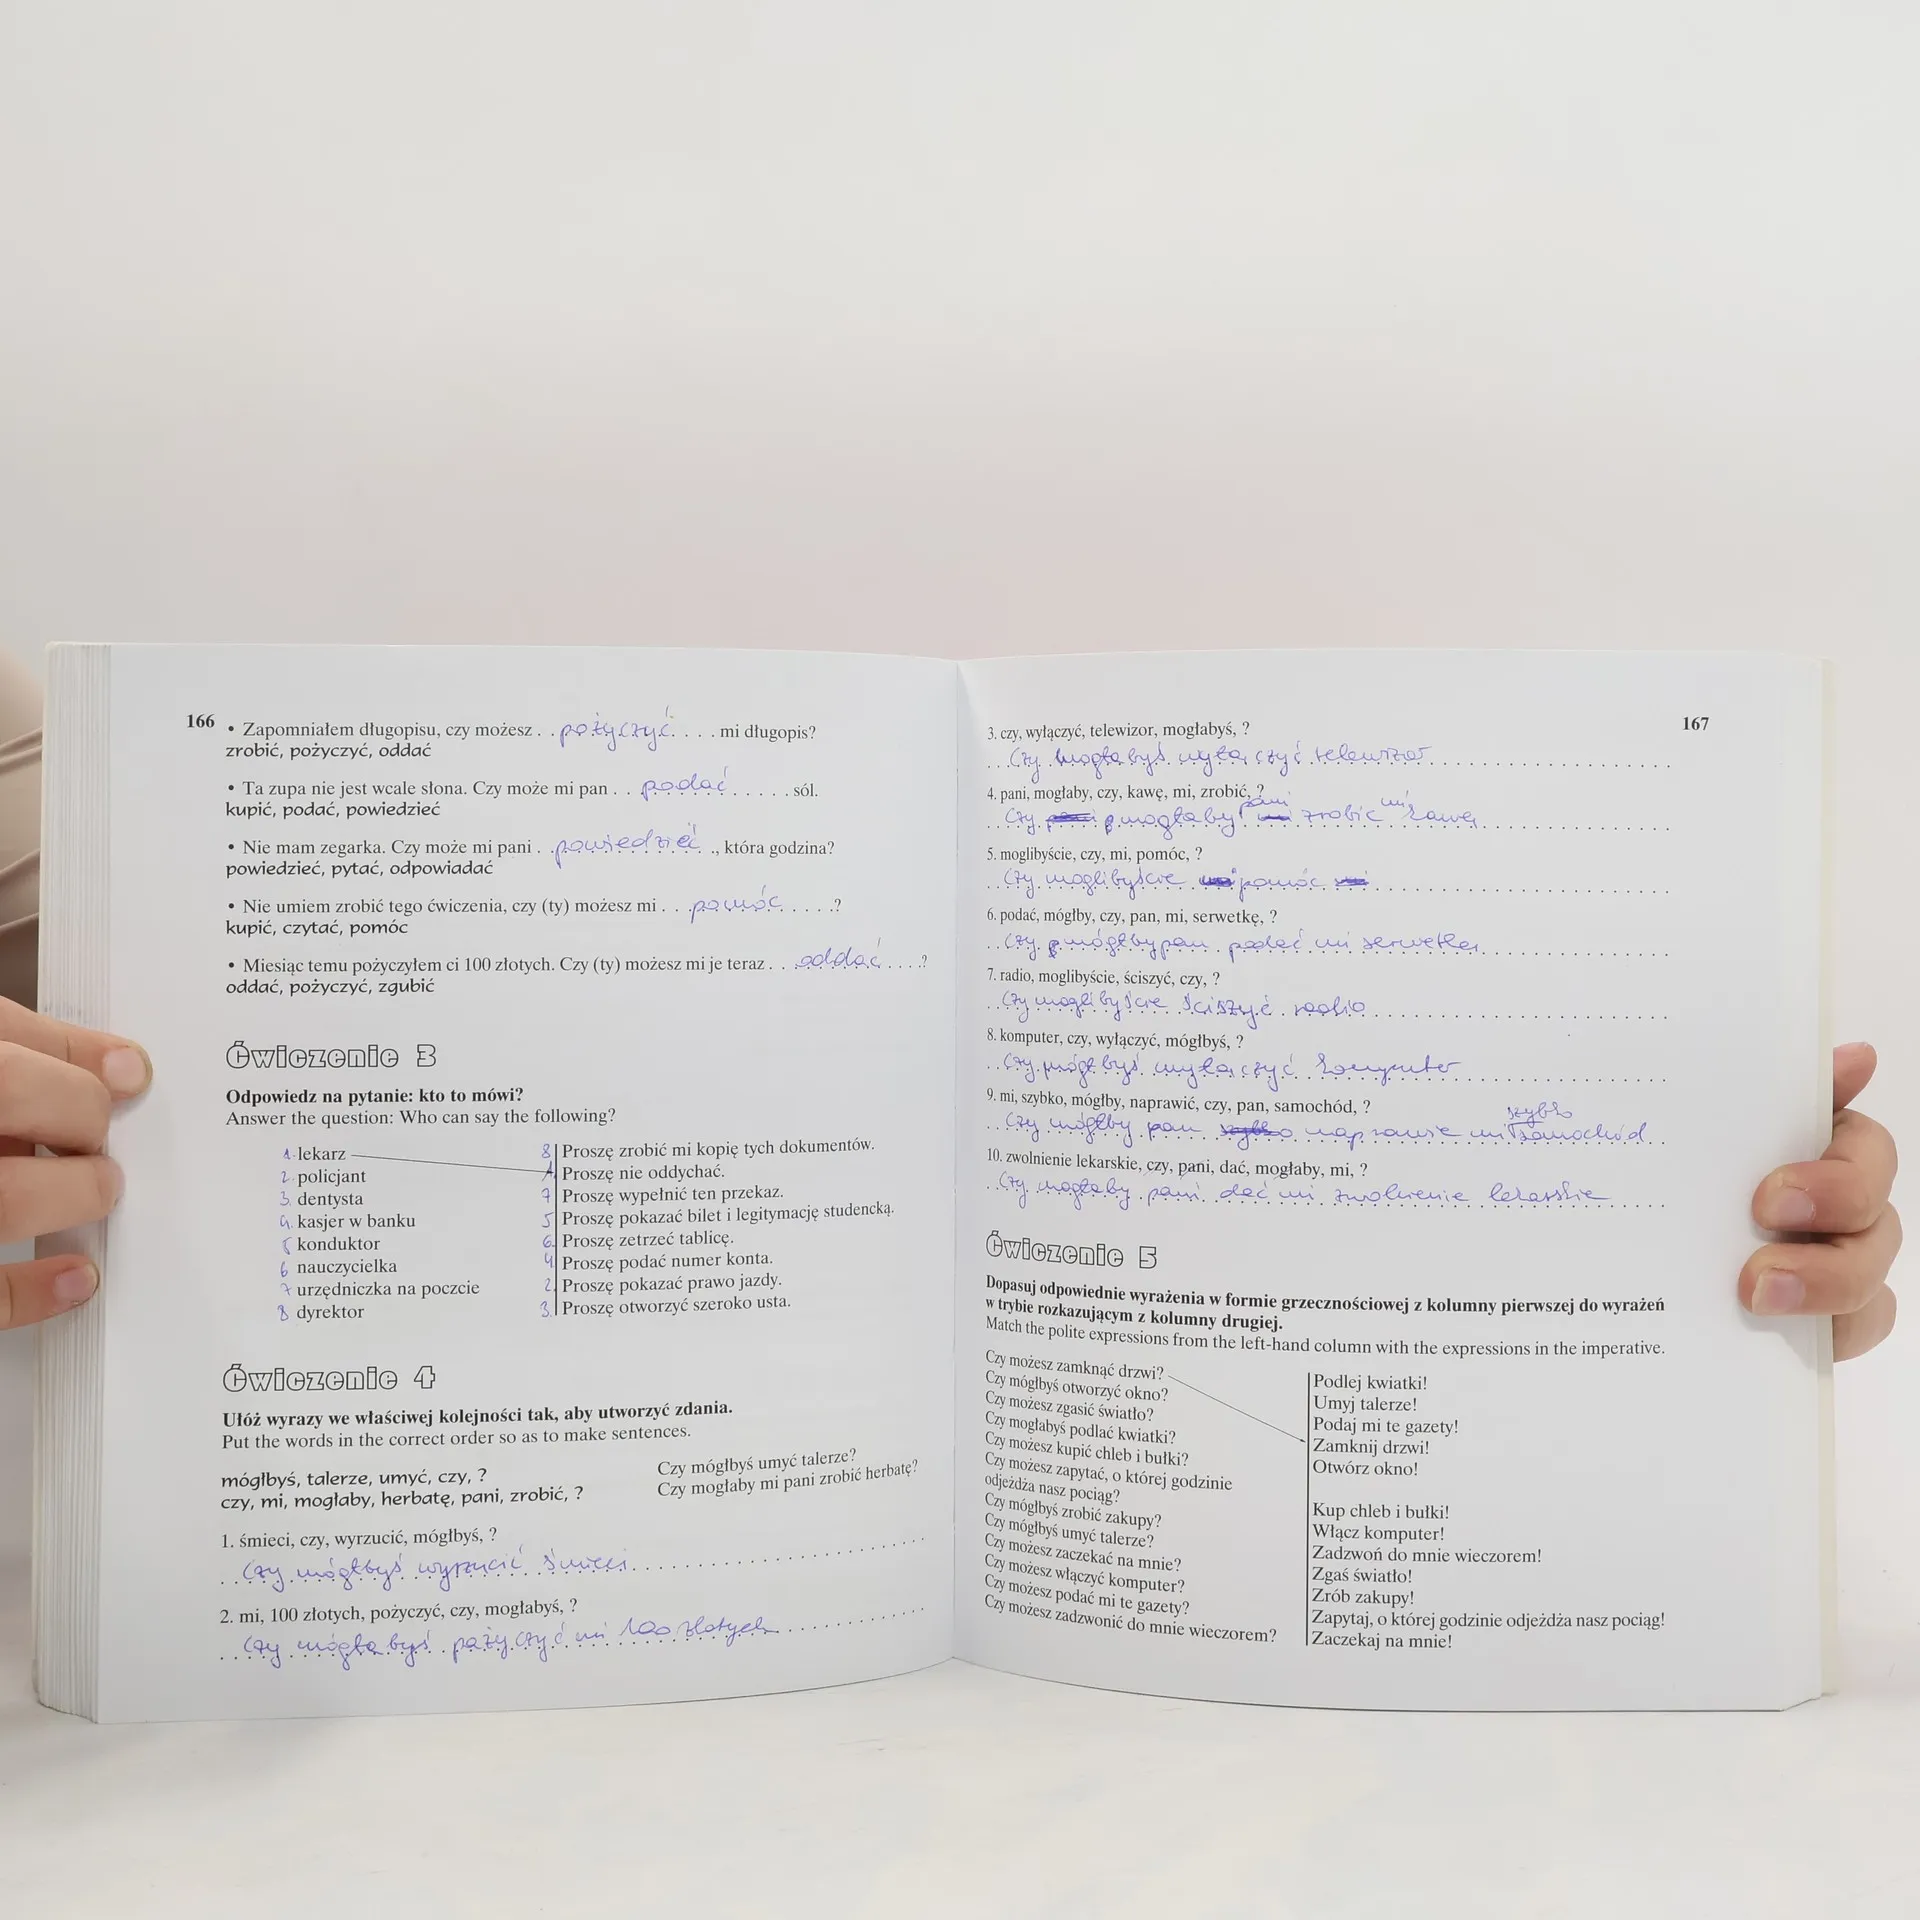 166
• Zapomniałem długopisu, czy możesz . . pożyczyć . . . . mi długopis?
zrobić, pożyczyć, oddać
• Ta zupa nie jest wcale słona. Czy może mi pan . . podać . . . . . sól.
kupić, podać, powiedzieć
• Nie mam zegarka. Czy może mi pani . . powiedzieć . ., która godzina?
powiedzieć, pytać, odpowiadać
• Nie umiem zrobić tego ćwiczenia, czy (ty) możesz mi . . . pomóc . . . . .?
kupić, czytać, pomóc
• Miesiąc temu pożyczyłem ci 100 złotych. Czy (ty) możesz mi je teraz . . oddać . . . .?
oddać, pożyczyć, zgubić
Ćwiczenie 3
Odpowiedz na pytanie: kto to mówi?
Answer the question: Who can say the following?
1. lekarz
2. policjant
3. dentysta
4. kasjer w banku
5 konduktor
6 nauczycielka
7 urzędniczka na poczcie
8 dyrektor
8 Proszę zrobić mi kopię tych dokumentów.
1 Proszę nie oddychać.
7 Proszę wypełnić ten przekaz.
5 Proszę pokazać bilet i legitymację studencką.
6. Proszę zetrzeć tablicę.
4 Proszę podać numer konta.
2. Proszę pokazać prawo jazdy.
3. Proszę otworzyć szeroko usta.
Ćwiczenie 4
Ułóż wyrazy we właściwej kolejności tak, aby utworzyć zdania.
Put the words in the correct order so as to make sentences.
mógłbyś, talerze, umyć, czy, ?
czy, mi, mogłaby, herbatę, pani, zrobić, ?
Czy mógłbyś umyć talerze?
Czy mogłaby mi pani zrobić herbatę?
1. śmieci, czy, wyrzucić, mógłbyś, ?
Czy mógłbyś wyrzucić śmieci
2. mi, 100 złotych, pożyczyć, czy, mogłabyś, ?
Czy mógłabyś pożyczyć mi 100 złotych
167
3. czy, wyłączyć, telewizor, mogłabyś, ?
Czy mogłabyś wyłączyć telewizor
4. pani, mogłaby, czy, kawę, mi, zrobić, ?
Czy mogłaby pani zrobić mi kawę
5. moglibyście, czy, mi, pomóc, ?
Czy moglibyście pomóc
6. podać, mógłby, czy, pan, mi, serwetkę, ?
Czy mógłby pan podać mi serwetkę
7. radio, moglibyście, ściszyć, czy, ?
Czy moglibyście ściszyć radio
8. komputer, czy, wyłączyć, mógłbyś, ?
Czy mógłbyś wyłączyć komputer
9. mi, szybko, mógłby, naprawić, czy, pan, samochód, ?
Czy mógłby pan naprawić mi szybko samochód
10. zwolnienie lekarskie, czy, pani, dać, mogłaby, mi, ?
Czy mogłaby pani dać mi zwolnienie lekarskie
Ćwiczenie 5
Dopasuj odpowiednie wyrażenia w formie grzecznościowej z kolumny pierwszej do wyrażeń
w trybie rozkazującym z kolumny drugiej.
Match the polite expressions from the left-hand column with the expressions in the imperative.
Czy możesz zamknąć drzwi?
Czy mógłbyś otworzyć okno?
Czy możesz zgasić światło?
Czy mogłabyś podlać kwiatki?
Czy możesz kupić chleb i bułki?
Czy możesz zapytać, o której godzinie
odjeżdża nasz pociąg?
Czy mógłbyś zrobić zakupy?
Czy mógłbyś umyć talerze?
Czy możesz zaczekać na mnie?
Czy możesz włączyć komputer?
Czy możesz podać mi te gazety?
Czy możesz zadzwonić do mnie wieczorem?
Podlej kwiatki!
Umyj talerze!
Podaj mi te gazety!
Zamknij drzwi!
Otwórz okno!
Kup chleb i bułki!
Włącz komputer!
Zadzwoń do mnie wieczorem!
Zgaś światło!
Zrób zakupy!
Zapytaj, o której godzinie odjeżdża nasz pociąg!
Zaczekaj na mnie!